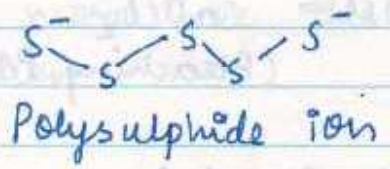 S⁻ S S S S⁻
Polysulphide ion